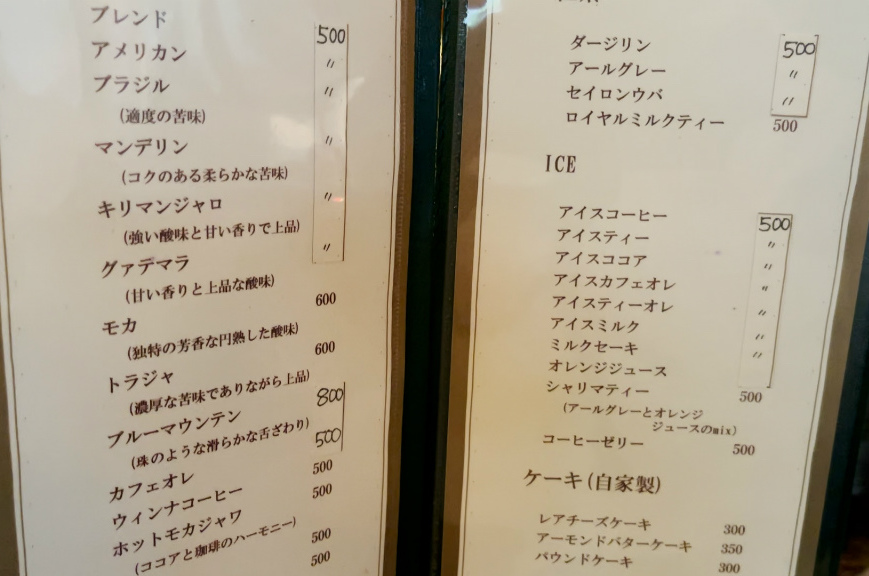 ブレンド 500
アメリカン 〃
ブラジル 〃
(適度の苦味)
マンデリン 〃
(コクのある柔らかな苦味)
キリマンジャロ 〃
(強い酸味と甘い香りで上品)
グァデマラ 〃
(甘い香りと上品な酸味)
モカ 600
(独特の芳香な円熟した酸味)
トラジャ 600
(濃厚な苦味でありながら上品)
ブルーマウンテン 800
(珠のような滑らかな舌ざわり)
カフェオレ 500
ウィンナコーヒー 500
ホットモカジャワ 500
(ココアと珈琲のハーモニー) 500
500
ダージリン 500
アールグレー 〃
セイロンウバ 〃
ロイヤルミルクティー 500
ICE
アイスコーヒー 500
アイスティー 〃
アイスココア 〃
アイスカフェオレ 〃
アイスティーオレ 〃
アイスミルク 〃
ミルクセーキ 〃
オレンジジュース
シャリマティー 500
(アールグレーとオレンジ
ジュースのmix)
コーヒーゼリー 500
ケーキ(自家製)
レアチーズケーキ 300
アーモンドバターケーキ 350
パウンドケーキ 300